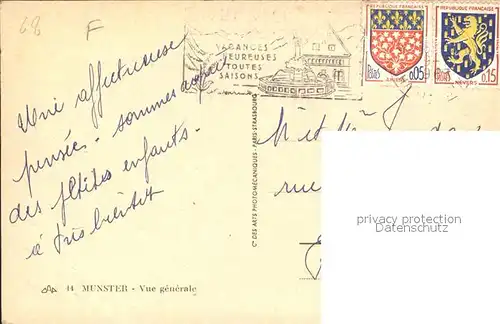 68 F
VACANCES
HEUREUSES
TOUTES
SAISONS
REPUBLIQUE FRANÇAISE
POSTES 0,05
AMIENS
REPUBLIQUE FRANÇAISE
POSTES 0,15
NEVERS
Une affectueuse
pensée - sommes
des petites enfants.
à très bientôt
Cie DES ARTS PHOTOMÉCANIQUES - PARIS-STRASBOURG
M et
rue
privacy protection
Datenschutz
14 MUNSTER - Vue générale